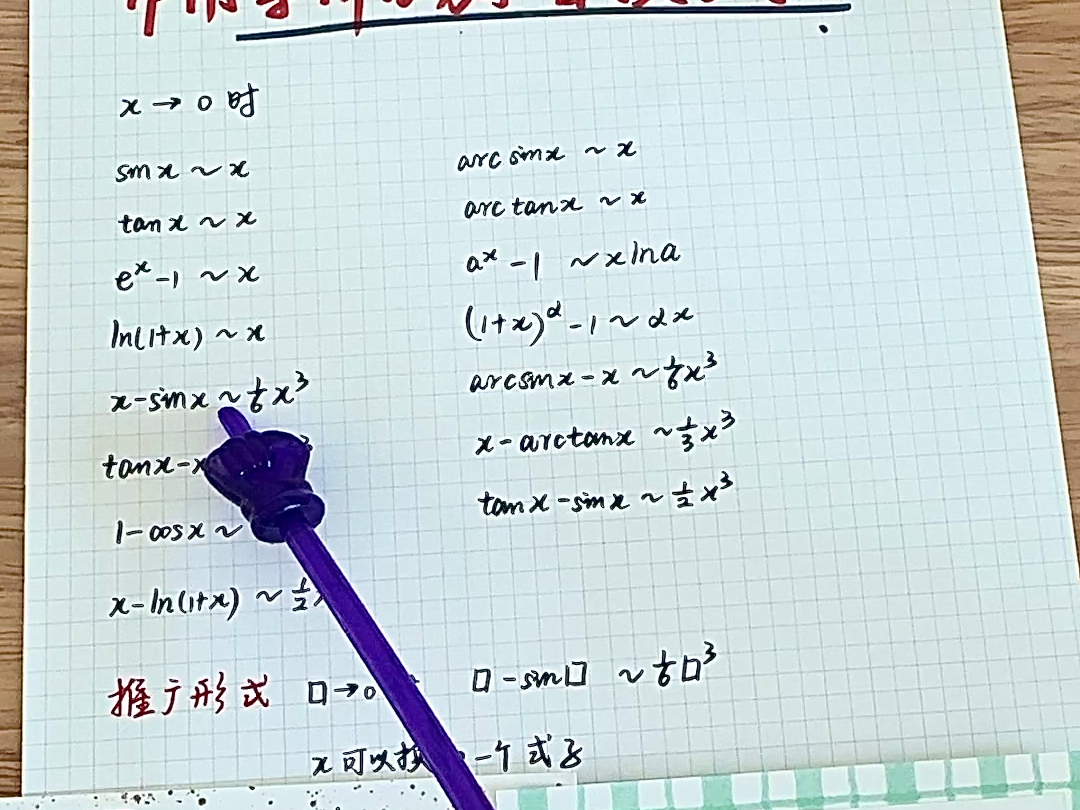 x → 0 时
sin x ~ x
tan x ~ x
eˣ - 1 ~ x
ln(1+x) ~ x
x - sin x ~ 1/6 x³
tan x - x
1 - cos x ~
x - ln(1+x) ~ 1/2
arcsin x ~ x
arctan x ~ x
aˣ - 1 ~ x ln a
(1+x)^α - 1 ~ αx
arcsin x - x ~ 1/6 x³
x - arctan x ~ 1/3 x³
tan x - sin x ~ 1/2 x³
推广形式 □→0 □ - sin□ ~ 1/6 □³
x 可以换 一个式子